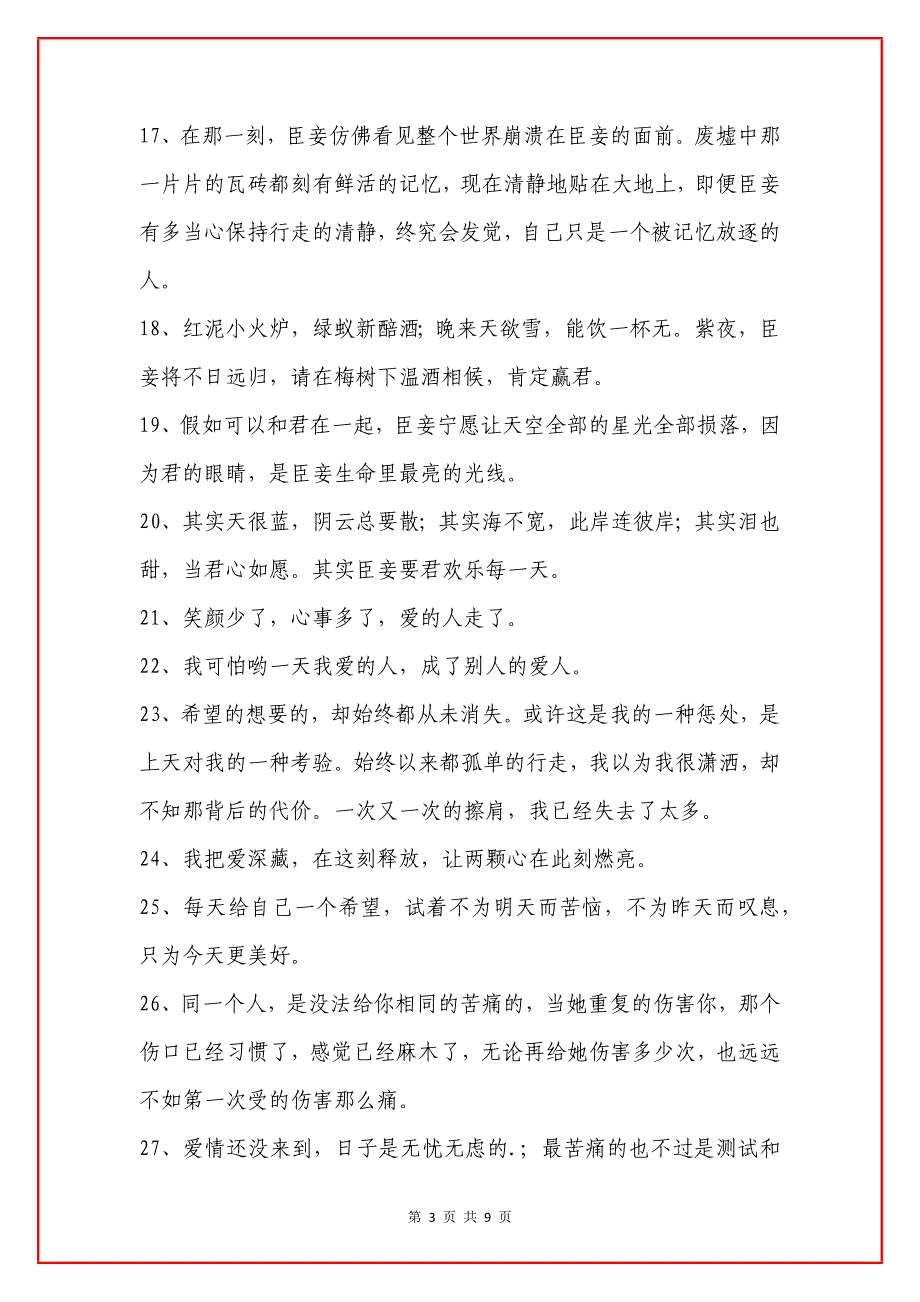 17、在那一刻，臣妾仿佛看见整个世界崩溃在臣妾的面前。废墟中那
一片片的瓦砖都刻有鲜活的记忆，现在清静地贴在大地上，即便臣妾
有多当心保持行走的清静，终究会发觉，自己只是一个被记忆放逐的
人。
18、红泥小火炉，绿蚁新醅酒；晚来天欲雪，能饮一杯无。紫夜，臣
妾将不日远归，请在梅树下温酒相候，肯定赢君。
19、假如可以和君在一起，臣妾宁愿让天空全部的星光全部损落，因
为君的眼睛，是臣妾生命里最亮的光线。
20、其实天很蓝，阴云总要散；其实海不宽，此岸连彼岸；其实泪也
甜，当君心如愿。其实臣妾要君欢乐每一天。
21、笑颜少了，心事多了，爱的人走了。
22、我可怕哟一天我爱的人，成了别人的爱人。
23、希望的想要的，却始终都从未消失。或许这是我的一种惩处，是
上天对我的一种考验。始终以来都孤单的行走，我以为我很潇洒，却
不知那背后的代价。一次又一次的擦肩，我已经失去了太多。
24、我把爱深藏，在这刻释放，让两颗心在此刻燃亮。
25、每天给自己一个希望，试着不为明天而苦恼，不为昨天而叹息，
只为今天更美好。
26、同一个人，是没法给你相同的苦痛的，当她重复的伤害你，那个
伤口已经习惯了，感觉已经麻木了，无论再给她伤害多少次，也远远
不如第一次受的伤害那么痛。
27、爱情还没来到，日子是无忧无虑的.；最苦痛的也不过是测试和
第 3 页 共 9 页